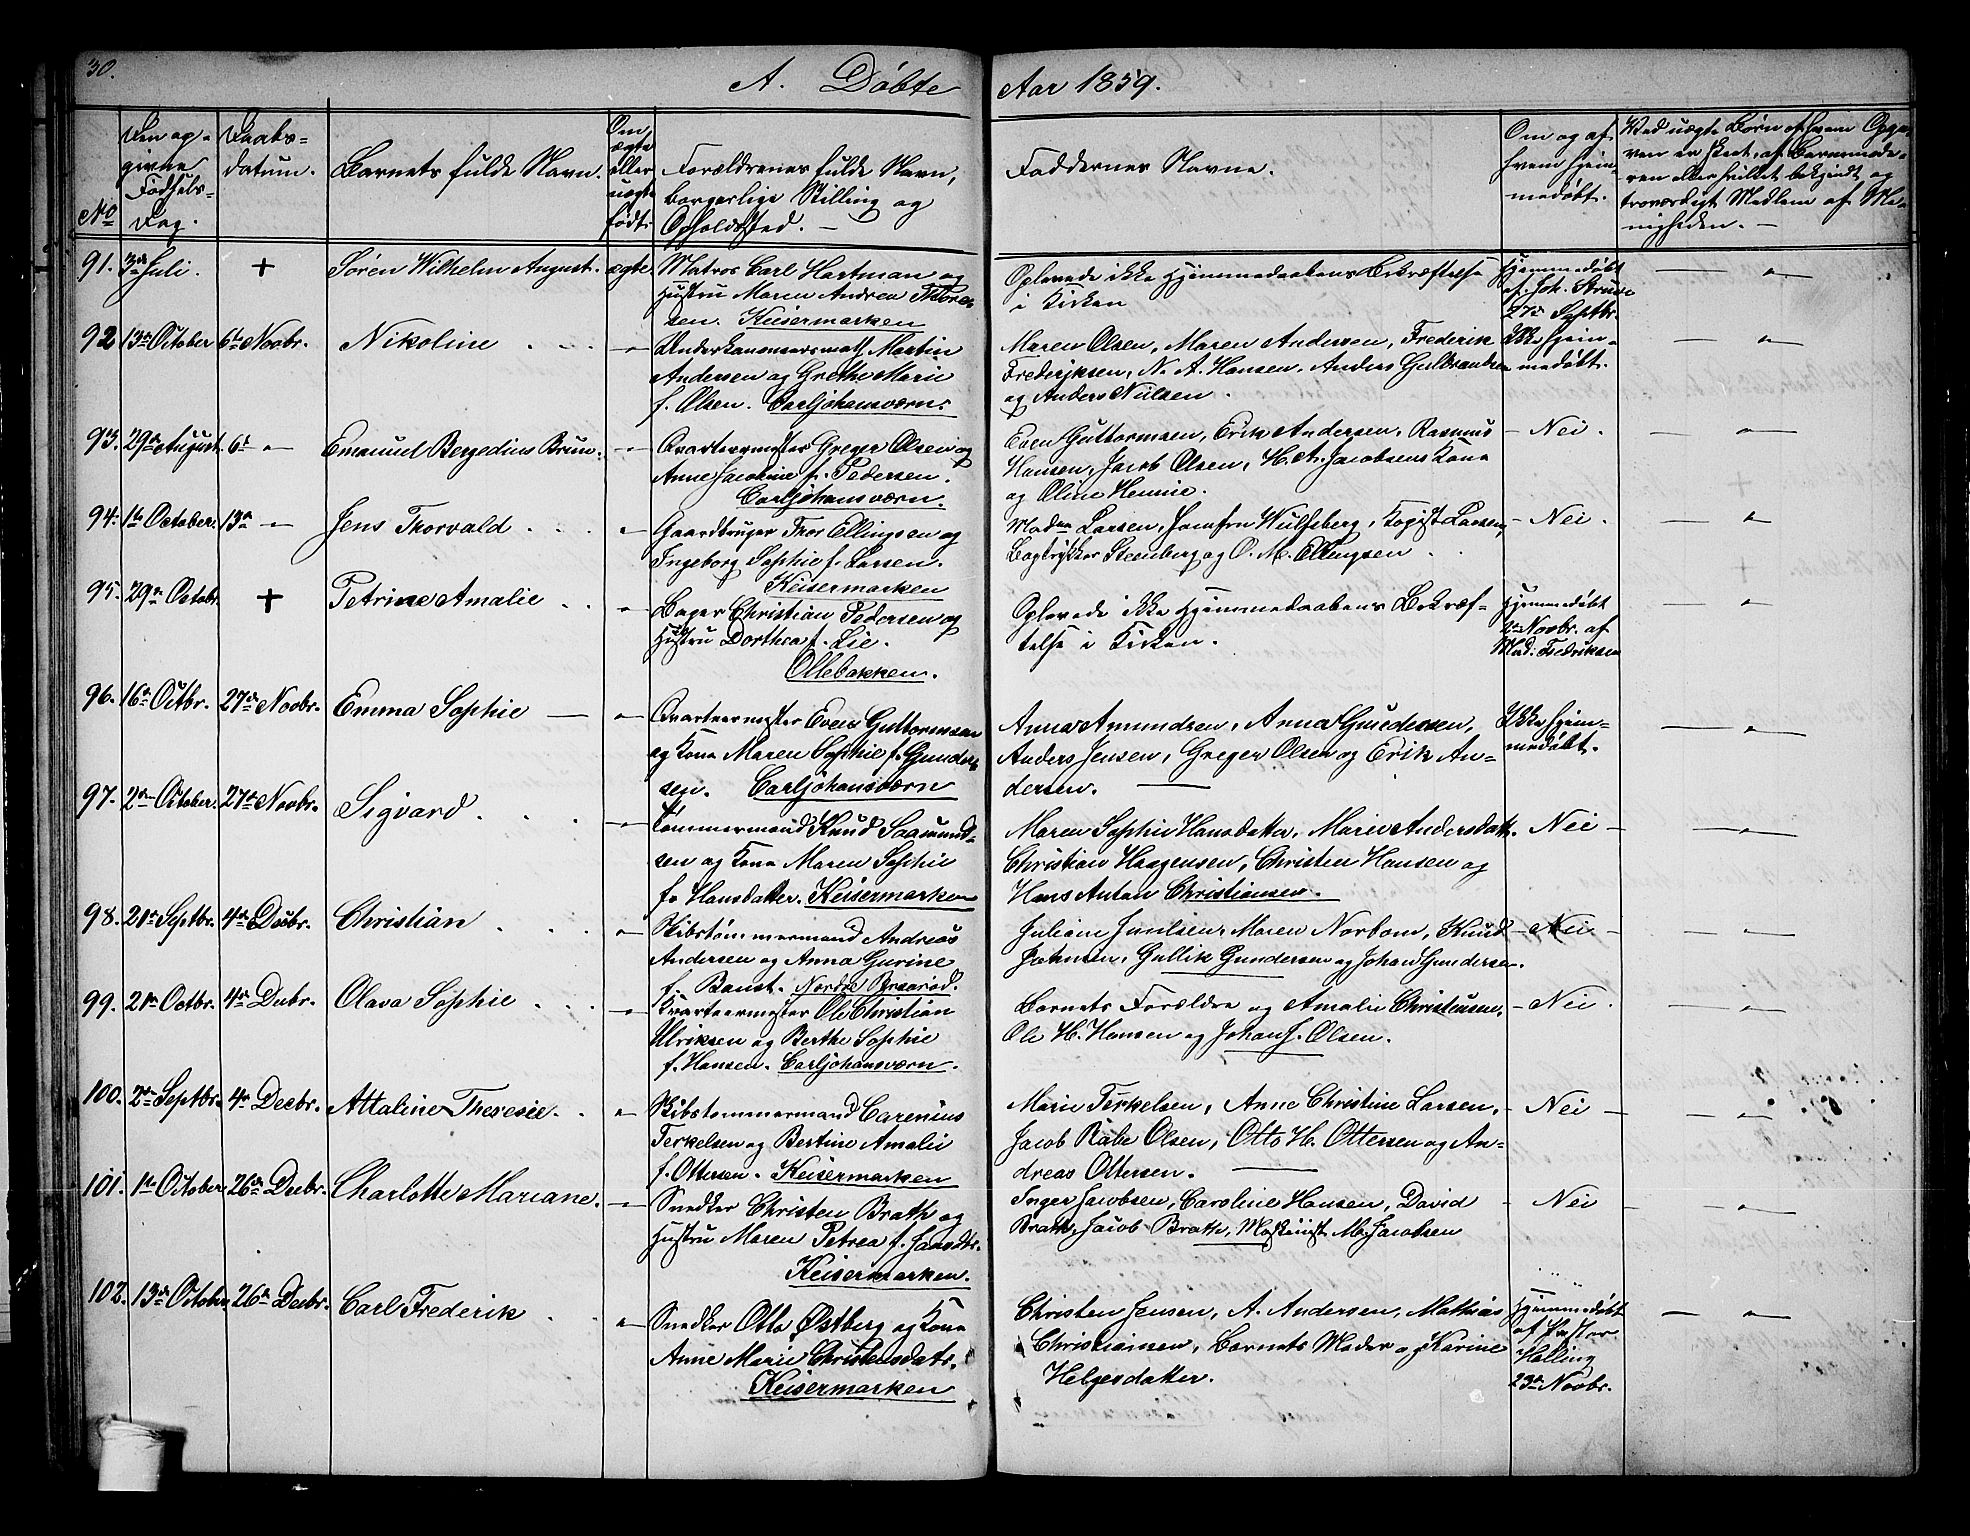 30.
A. Döbte
Aar 1859.
No
Den op-
givne
Födsels-
Dag.
Daabs-
datum.
Barnets fulde Navn.
Om
ægte
eller
uægte
födt.
Forældrenes fulde Navn,
borgerlige Stilling og
Opholdssted. –
Faddernes Navne.
Om og af
hvem hjem-
medöbt.
Ved uægte Börn af hvem Opga-
ven er skeet, af Barnemode-
ren eller hvilket bekjendt og
troværdigt Medlem af Me-
nigheden. –
91. 3de Juli. + Sören Wilhelm August. ægte
Matros Carl Hartman og
Hustru Maren Andrea Thore-
sen. Keisermarken
Oplevede ikke Hjemmedaabens Bekræftelse
i Kirken
Hjemmedöbt
af Joh. Struve
27de Septbr.
92 13de October 6te Novbr. Nikoline
Underkanoneersmath Martin
Andersen og Grethe Marie
f. Olsen. Carljohansværn.
Maren Olsen, Maren Andersen, Frederik
Frederiksen, N. A. Hansen, Anders Gulbrandsen
og Anders Nielsen.
Ikke hjem-
medöbt.
93. 29de August 6te – Emanuel Bergedius Brun.
Qvarteermester Greger Olsen og
Anne Jacobine f. Pedersen.
Carljohansværn.
Even Guttormsen, Erik Andersen, Rasmus
Hansen, Jacob Olsen, H. A. Jacobsens Kone
og Oline Hennie.
Nei.
94. 1te October. 13de – Jens Thorvald
Gaardbruger Thor Ellingsen og
Ingeborg Sophie f. Larsen.
Keisermarken
Madm Larsen, Jomfru Wulfsberg, Kopist Larsen,
Bogtrykker Steenberg og O. M. Ellingsen
Nei.
95. 29de Octobr. + Petrine Amalie
Bager Christian Pedersen og
Hustru Dorthea f. Lie.
Ollebakken.
Oplevede ikke Hjemmedaabens Bekræf-
telse i Kirken.
Hjemmedöbt
2de Novbr. af
Mad. Fredriksen
96. 16de Octbr. 27de Novbr. Emma Sophie
Qvarteermester Even Guttormsen
og Kone Maren Sophie f. Gunder-
sen. Carljohansværn
Anna Amundsen, Anna Gundersen,
Anders Jensen, Greger Olsen og Erik An-
dersen.
Ikke hjem-
medöbt.
97. 2den October. 27de Novbr. Sigvard
Tömmermand Knud Saamund-
sen og Kone Maren Sophie
f. Hansdatter. Keisermarken
Maren Sophie Hansdatter, Marie Andersdatt.
Christian Haagensen, Christen Hansen og
Hans Anton Christiansen.
Nei
98. 21de Septbr. 4de Decbr. Christian
Skibstömmermand Andreas
Andersen og Anna Gurine
f. Banst. Nordre Braaröd.
Juliane Juulsen, Maren Norbom, Knud
Johnsen, Gullik Gundersen og Johan Gundersen.
Nei
99. 21de Octbr. 4de Decbr. Olava Sophie
Kvarteermester Ole Christian
Ulriksen og Berthe Sophie
f. Hansen. Carljohansværn.
Barnets Forældre og Amalie Christensen,
Ole H. Hansen og Johan J. Olsen.
Nei.
100. 2den Septbr. 4de Decbr. Attaline Theresie.
Skibstömmermand Carenius
Terkelsen og Bertine Amalie
f. Ottersen. Keisermarken
Marie Terkelsen, Anne Christine Larsen,
Jacob Rabe Olsen, Otto H. Ottersen og An-
dreas Ottersen.
Nei
101. 1te October 26de Decbr. Charlotte Mariane.
Snedker Christen Brath og
Hustru Maren Petrea f. Hansdtr.
Keisermarken.
Inger Jacobsen, Caroline Hansen, David
Brath, Jacob Brath, Maskinist M. Jacobsen
Nei
102. 13de October 26de Decbr. Carl Frederik
Snedker Otto Østberg og Kone
Anne Marie Christensdatr.
Keisermarken
Christen Jensen, A. Andersen, Mathias
Christiansen, Barnets Moder og Karine
Helgesdatter.
Hjemmedöbt
af Pastor
Halling
23de Novbr.